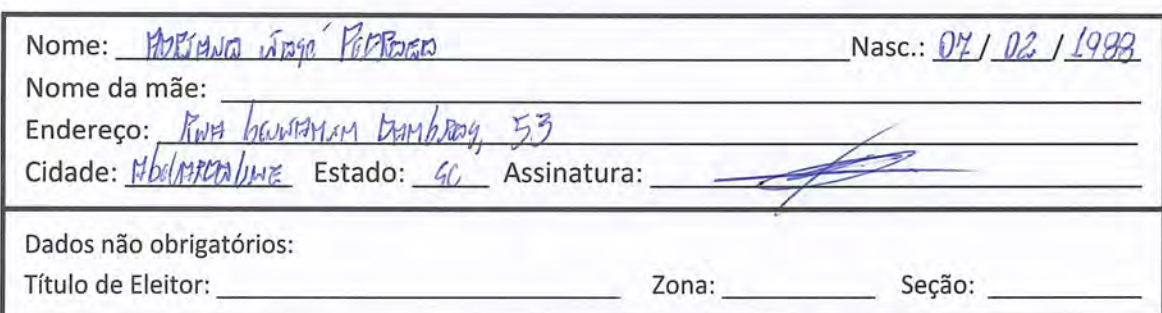 Nome: Adriano José Pedroso Nasc.: 07/02/1988
Nome da mãe:
Endereço: Rua Benjamim 53
Cidade: Abelardo Luz Estado: SC Assinatura:
Dados não obrigatórios:
Título de Eleitor: Zona: Seção: